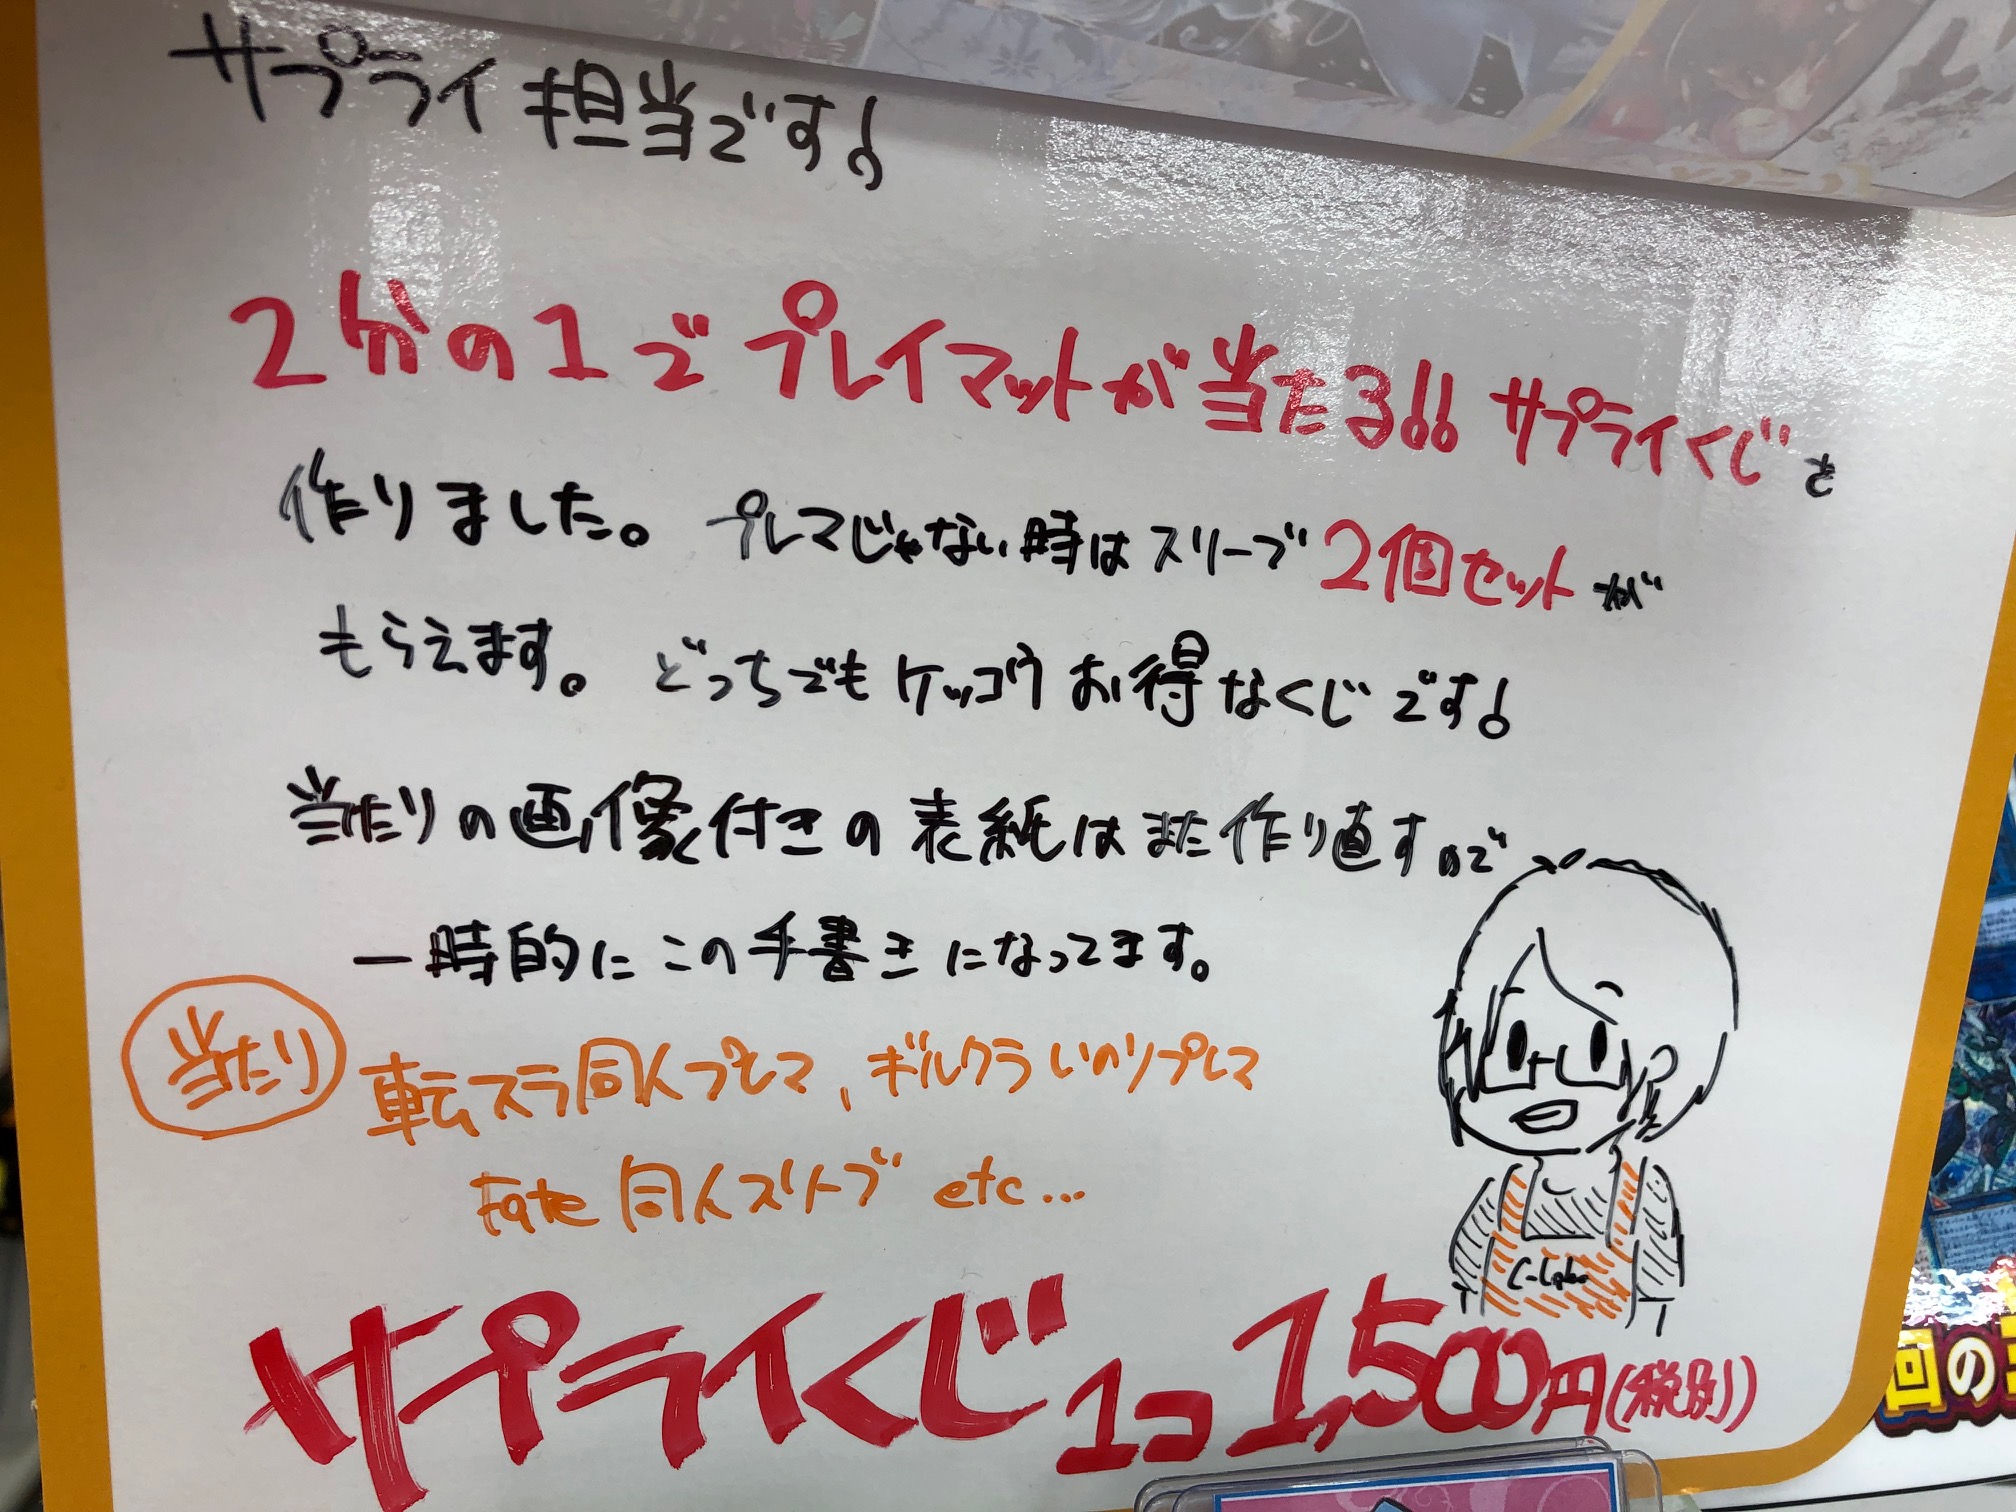 サプライ担当です!
2分の1でプレイマットが当たる!!サプライくじを
作りました。プレマじゃない時はスリーブ2個セットが
もらえます。どっちでもケッコウお得なくじです!
当たりの画像付きの表紙はまた作り直すので
一時的にこの手書きになってます。
当たり 転スラ同人プレマ、ギルクラいのりプレマ
Fate同人スリーブ etc…
C-Labo
サプライくじ1コ1,500円(税別)
回の